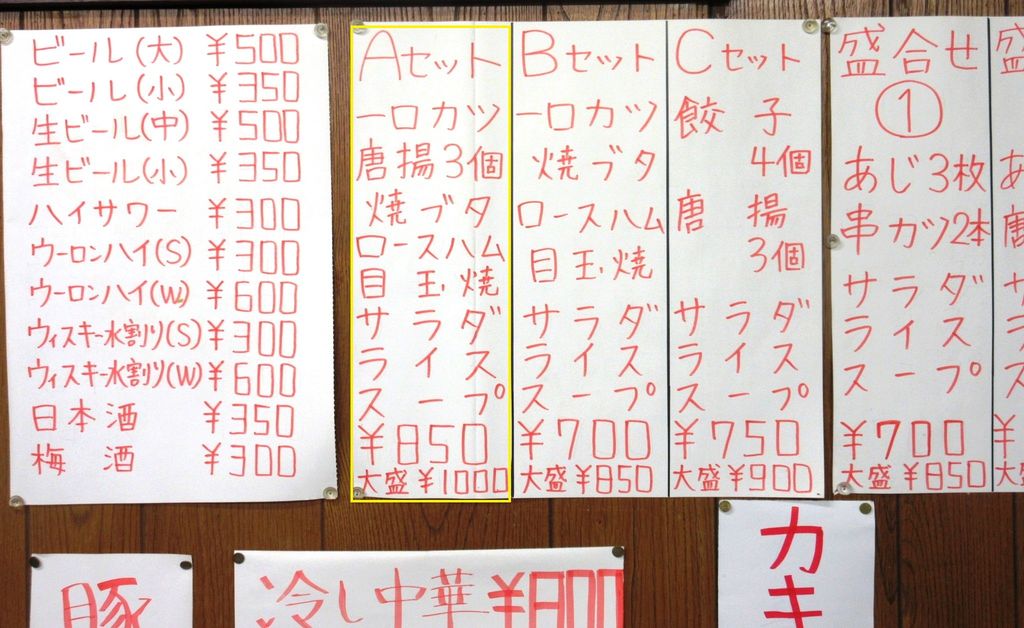 ビール(大) ¥500
ビール(小) ¥350
生ビール(中) ¥500
生ビール(小) ¥350
ハイサワー ¥300
ウーロンハイ(S) ¥300
ウーロンハイ(W) ¥600
ウィスキー水割り(S) ¥300
ウィスキー水割り(W) ¥600
日本酒 ¥350
梅酒 ¥300
Aセット
一口カツ
唐揚3個
焼ブタ
ロースハム
目玉焼
サラダ
ライス
スープ
¥850
大盛¥1000
Bセット
一口カツ
焼ブタ
ロースハム
目玉焼
サラダ
ライス
スープ
¥700
大盛¥850
Cセット
餃子
4個
唐揚
3個
サラダ
ライス
スープ
¥750
大盛¥900
盛合せ
①
あじ3枚
串カツ2本
サラダ
ライス
スープ
¥700
大盛¥850
豚
冷し中華¥800
カキ